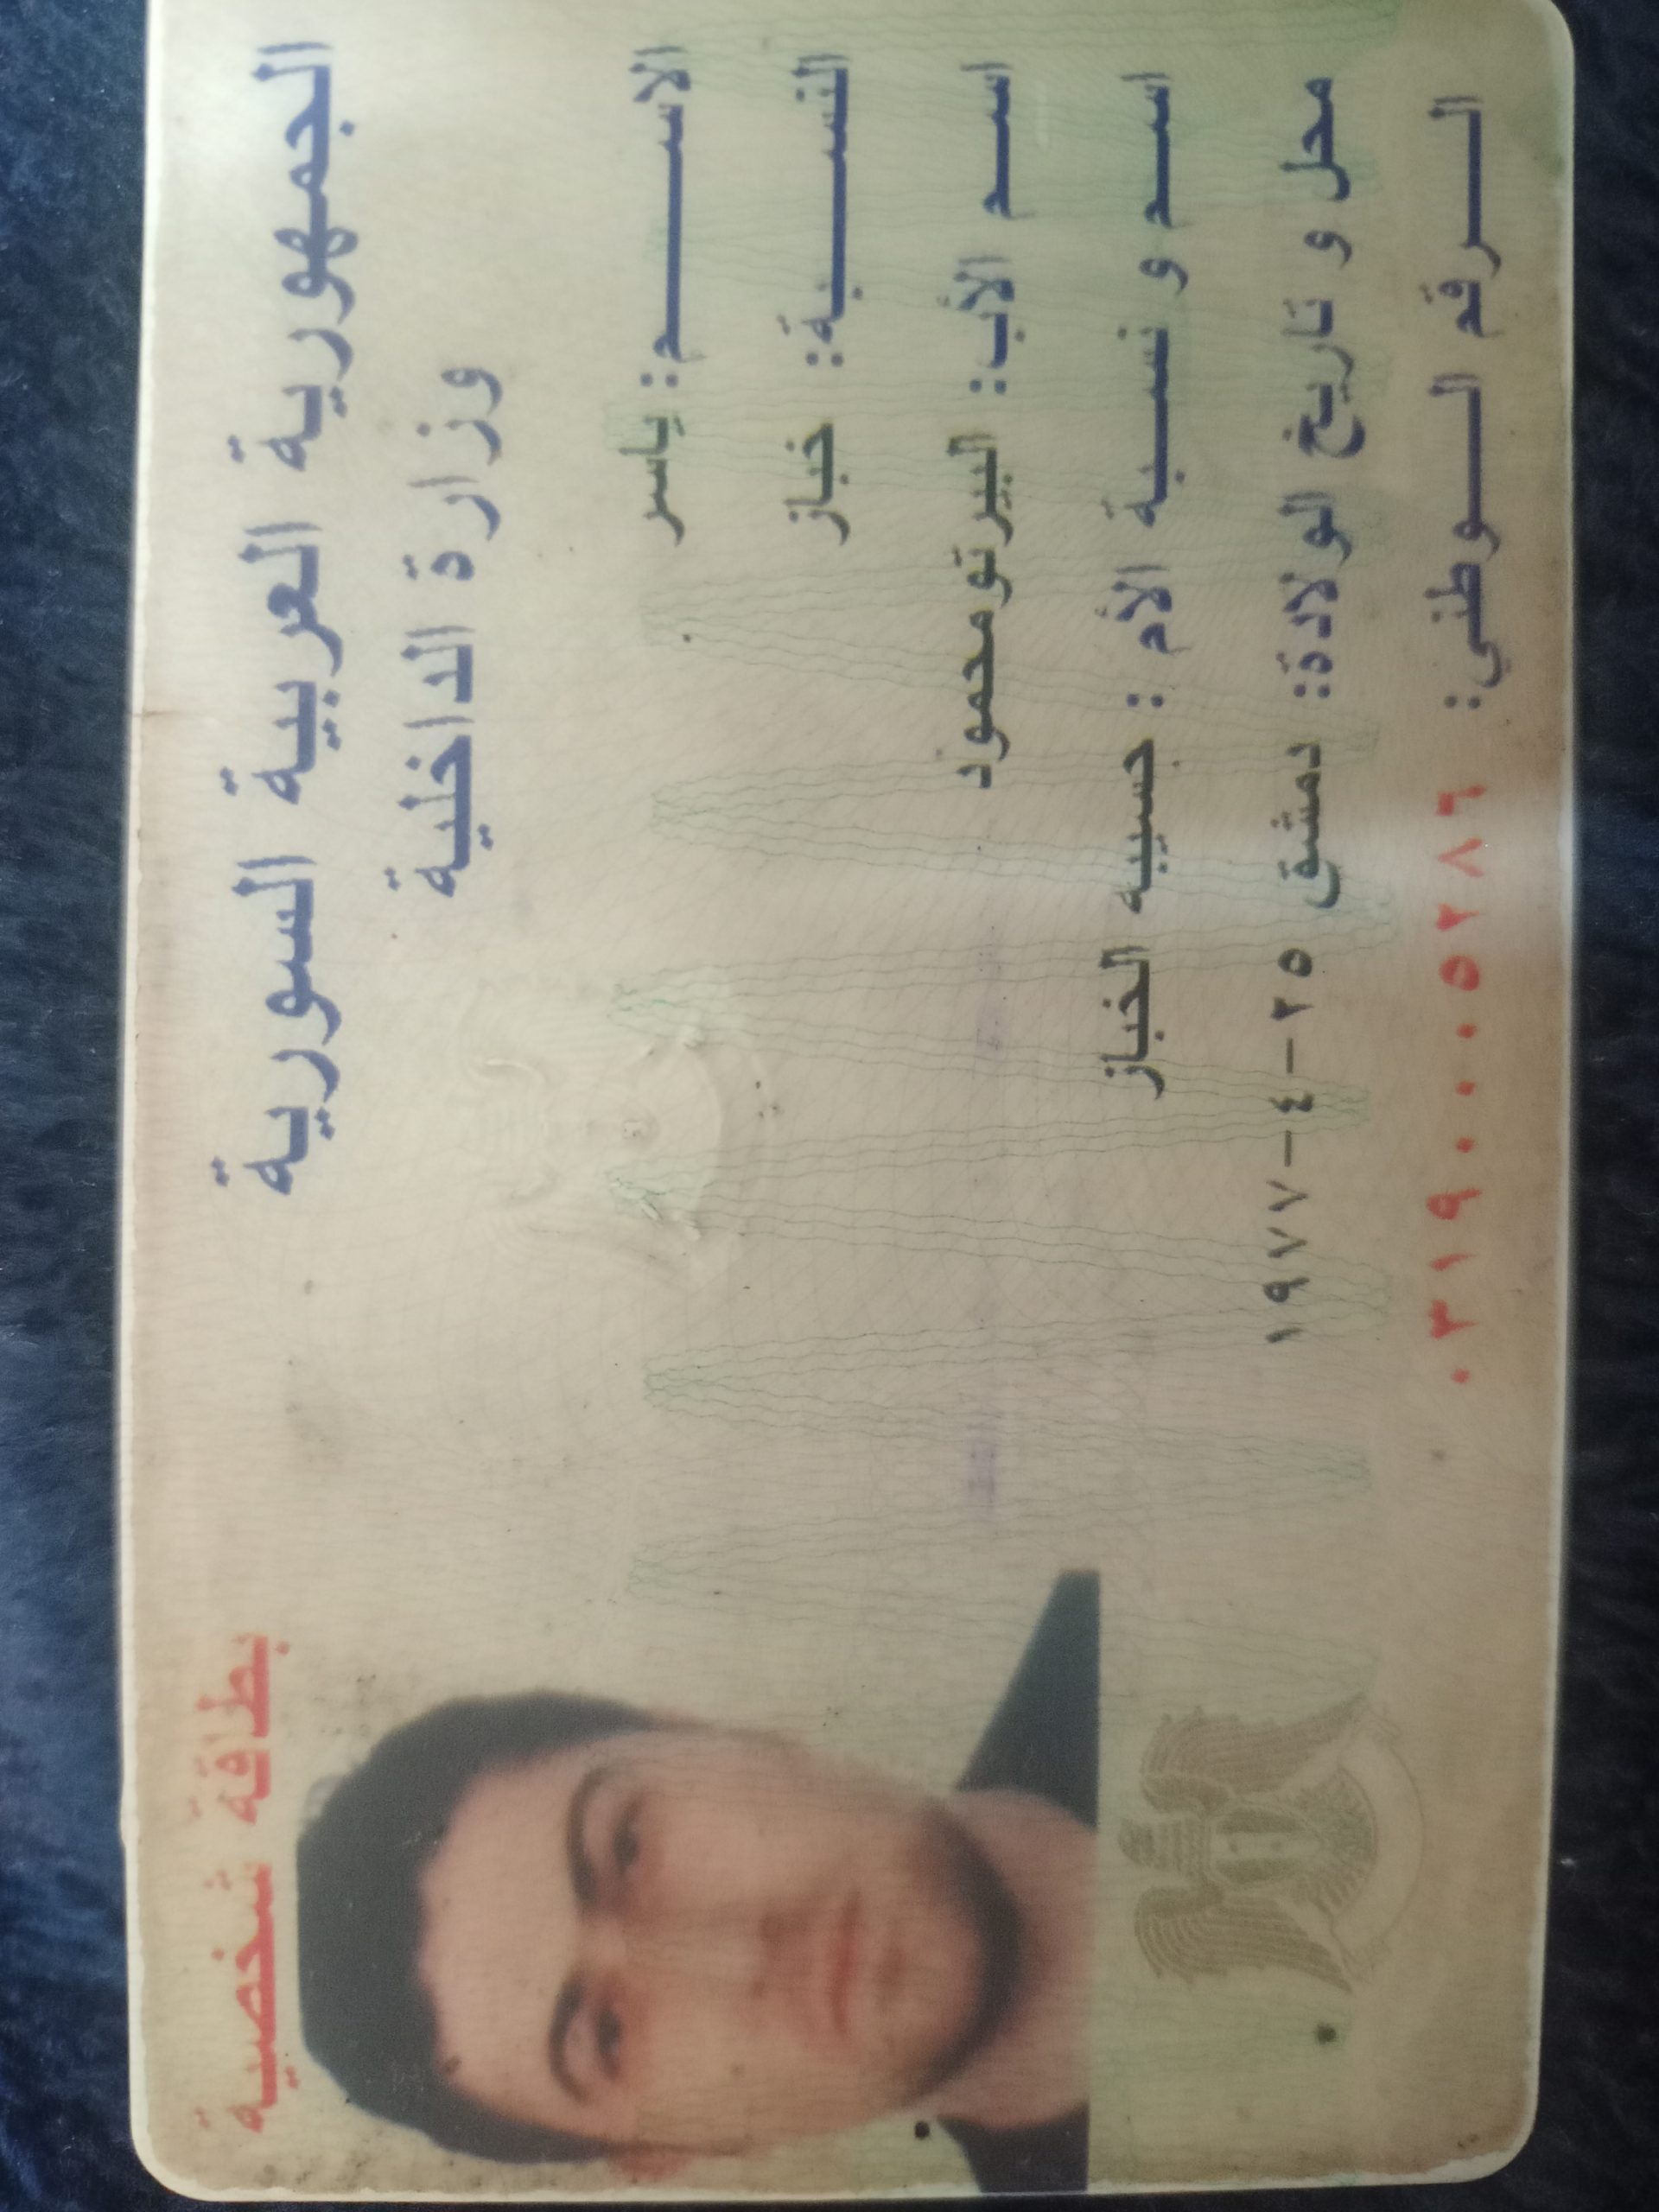 الجمهورية العربية السورية
وزارة الداخلية
بطاقة شخصية
الاسم: ياسر
النسبة: خباز
اسم الأب: البيرتو محمود
اسم و نسبة الأم : حسيبه الخباز
محل و تاريخ الولادة: دمشق ٢٥-٤-١٩٧٧
الرقم الوطني: ٠٣١٩٠٠٠٥٢٨٦